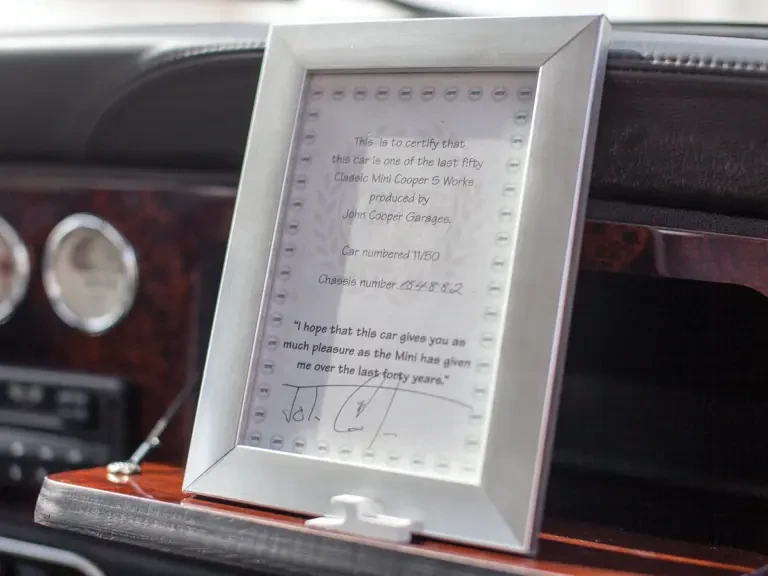 This is to certify that
this car is one of the last fifty
Classic Mini Cooper S Works
produced by
John Cooper Garages.
Car numbered 11/50
Chassis number 184882
"I hope that this car gives you as
much pleasure as the Mini has given
me over the last forty years."